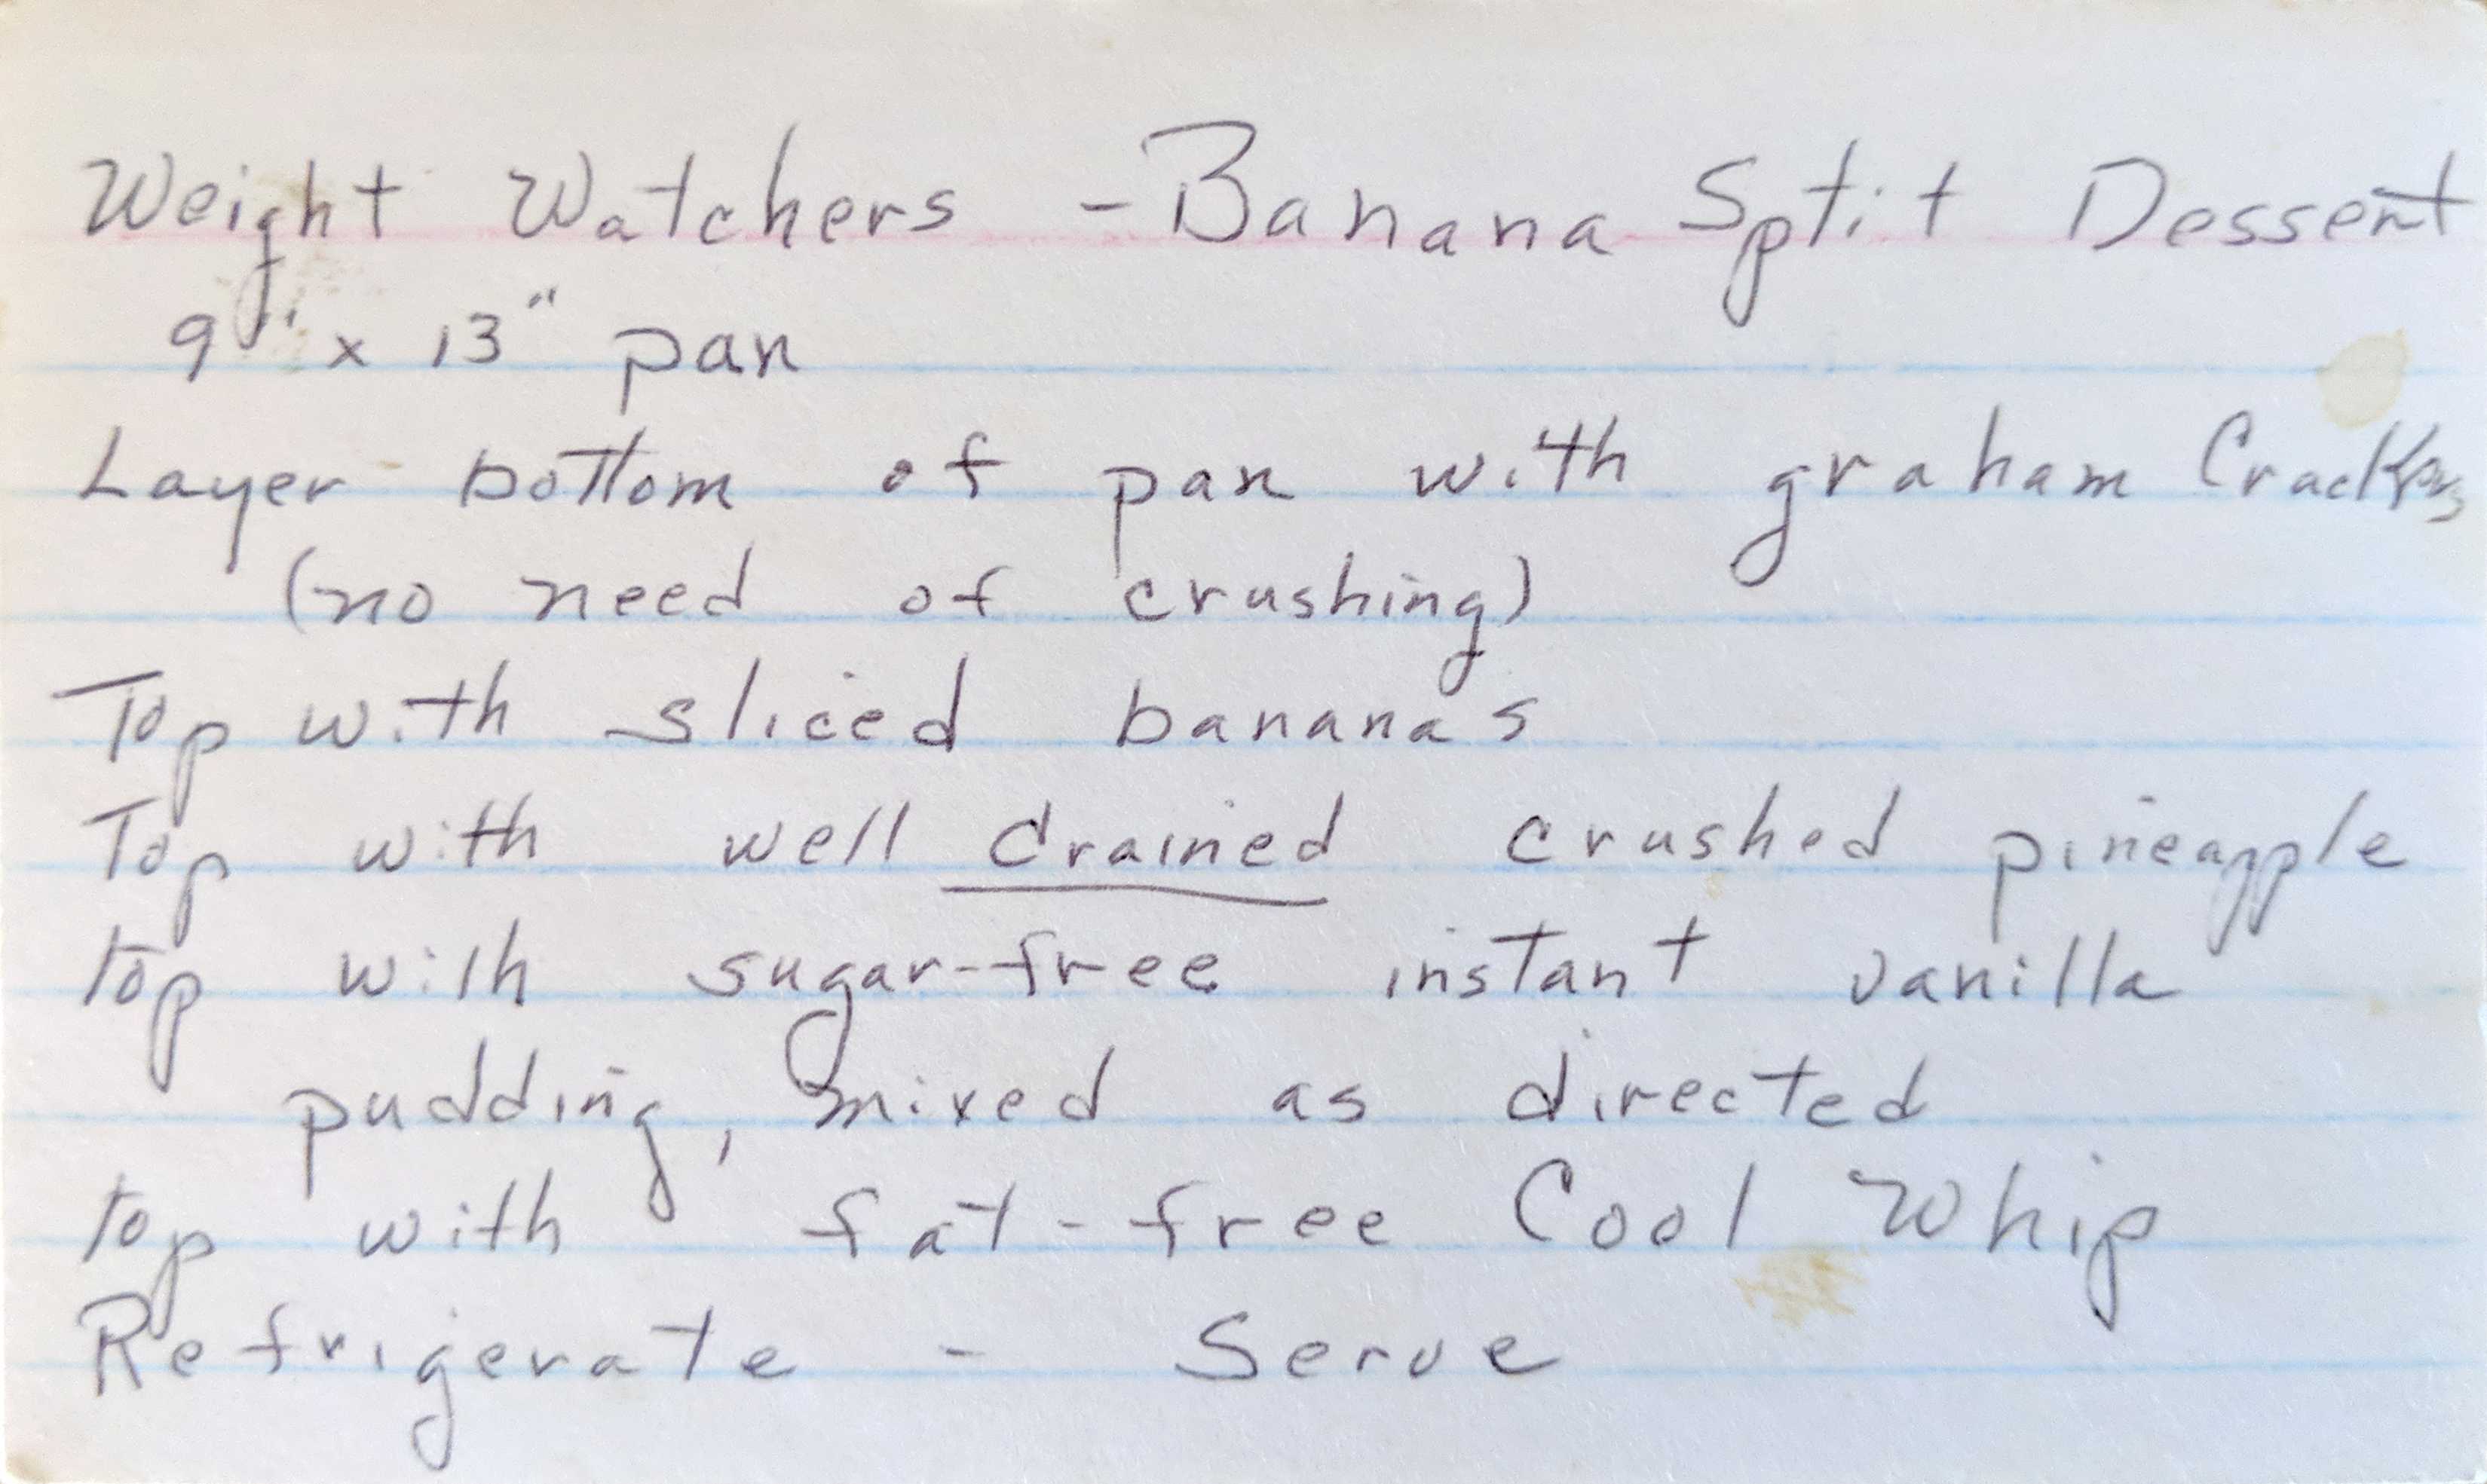 Weight Watchers - Banana Split Dessert
9" x 13" pan
Layer bottom of pan with graham Crackers
(no need of crushing)
Top with sliced bananas
Top with well drained crushed pineapple
top with sugar-free instant vanilla
pudding, mixed as directed
top with fat-free Cool Whip
Refrigerate - Serve